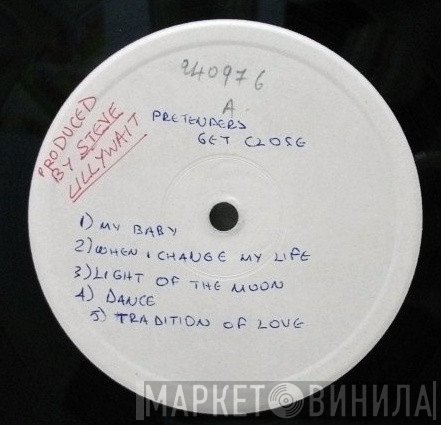 240976
A
PRETENDERS
GET CLOSE
PRODUCED
BY STEVE
LILLYWAIT
1) MY BABY
2) WHEN I CHANGE MY LIFE
3) LIGHT OF THE MOON
4) DANCE
5) TRADITION OF LOVE
МАРКЕТ ВИНИЛА